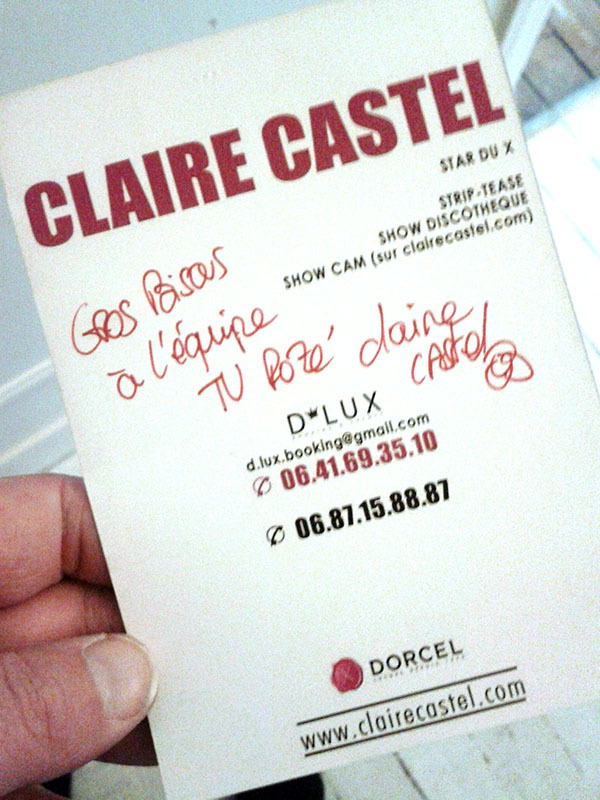 CLAIRE CASTEL
STAR DU X
STRIP-TEASE
SHOW DISCOTHEQUE
SHOW CAM (sur clairecastel.com)
Gros Bisous
à l'équipe
TU POZE' claire
CASTEL
D LUX
d.lux.booking@gmail.com
06.41.69.35.10
06.87.15.88.87
DORCEL
www.clairecastel.com